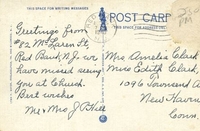 THIS SPACE FOR WRITING MESSAGES
POST CARD
Greetings from
#82 McLaren St,
Red Bank, N.J. we
have missed seeing
you at Church.
Best wishes
Mr & Mrs J. P. Hall
Mrs Amelia Clark
Miss Edith Clark,
1096 Townsend A
New Haven
Conn.